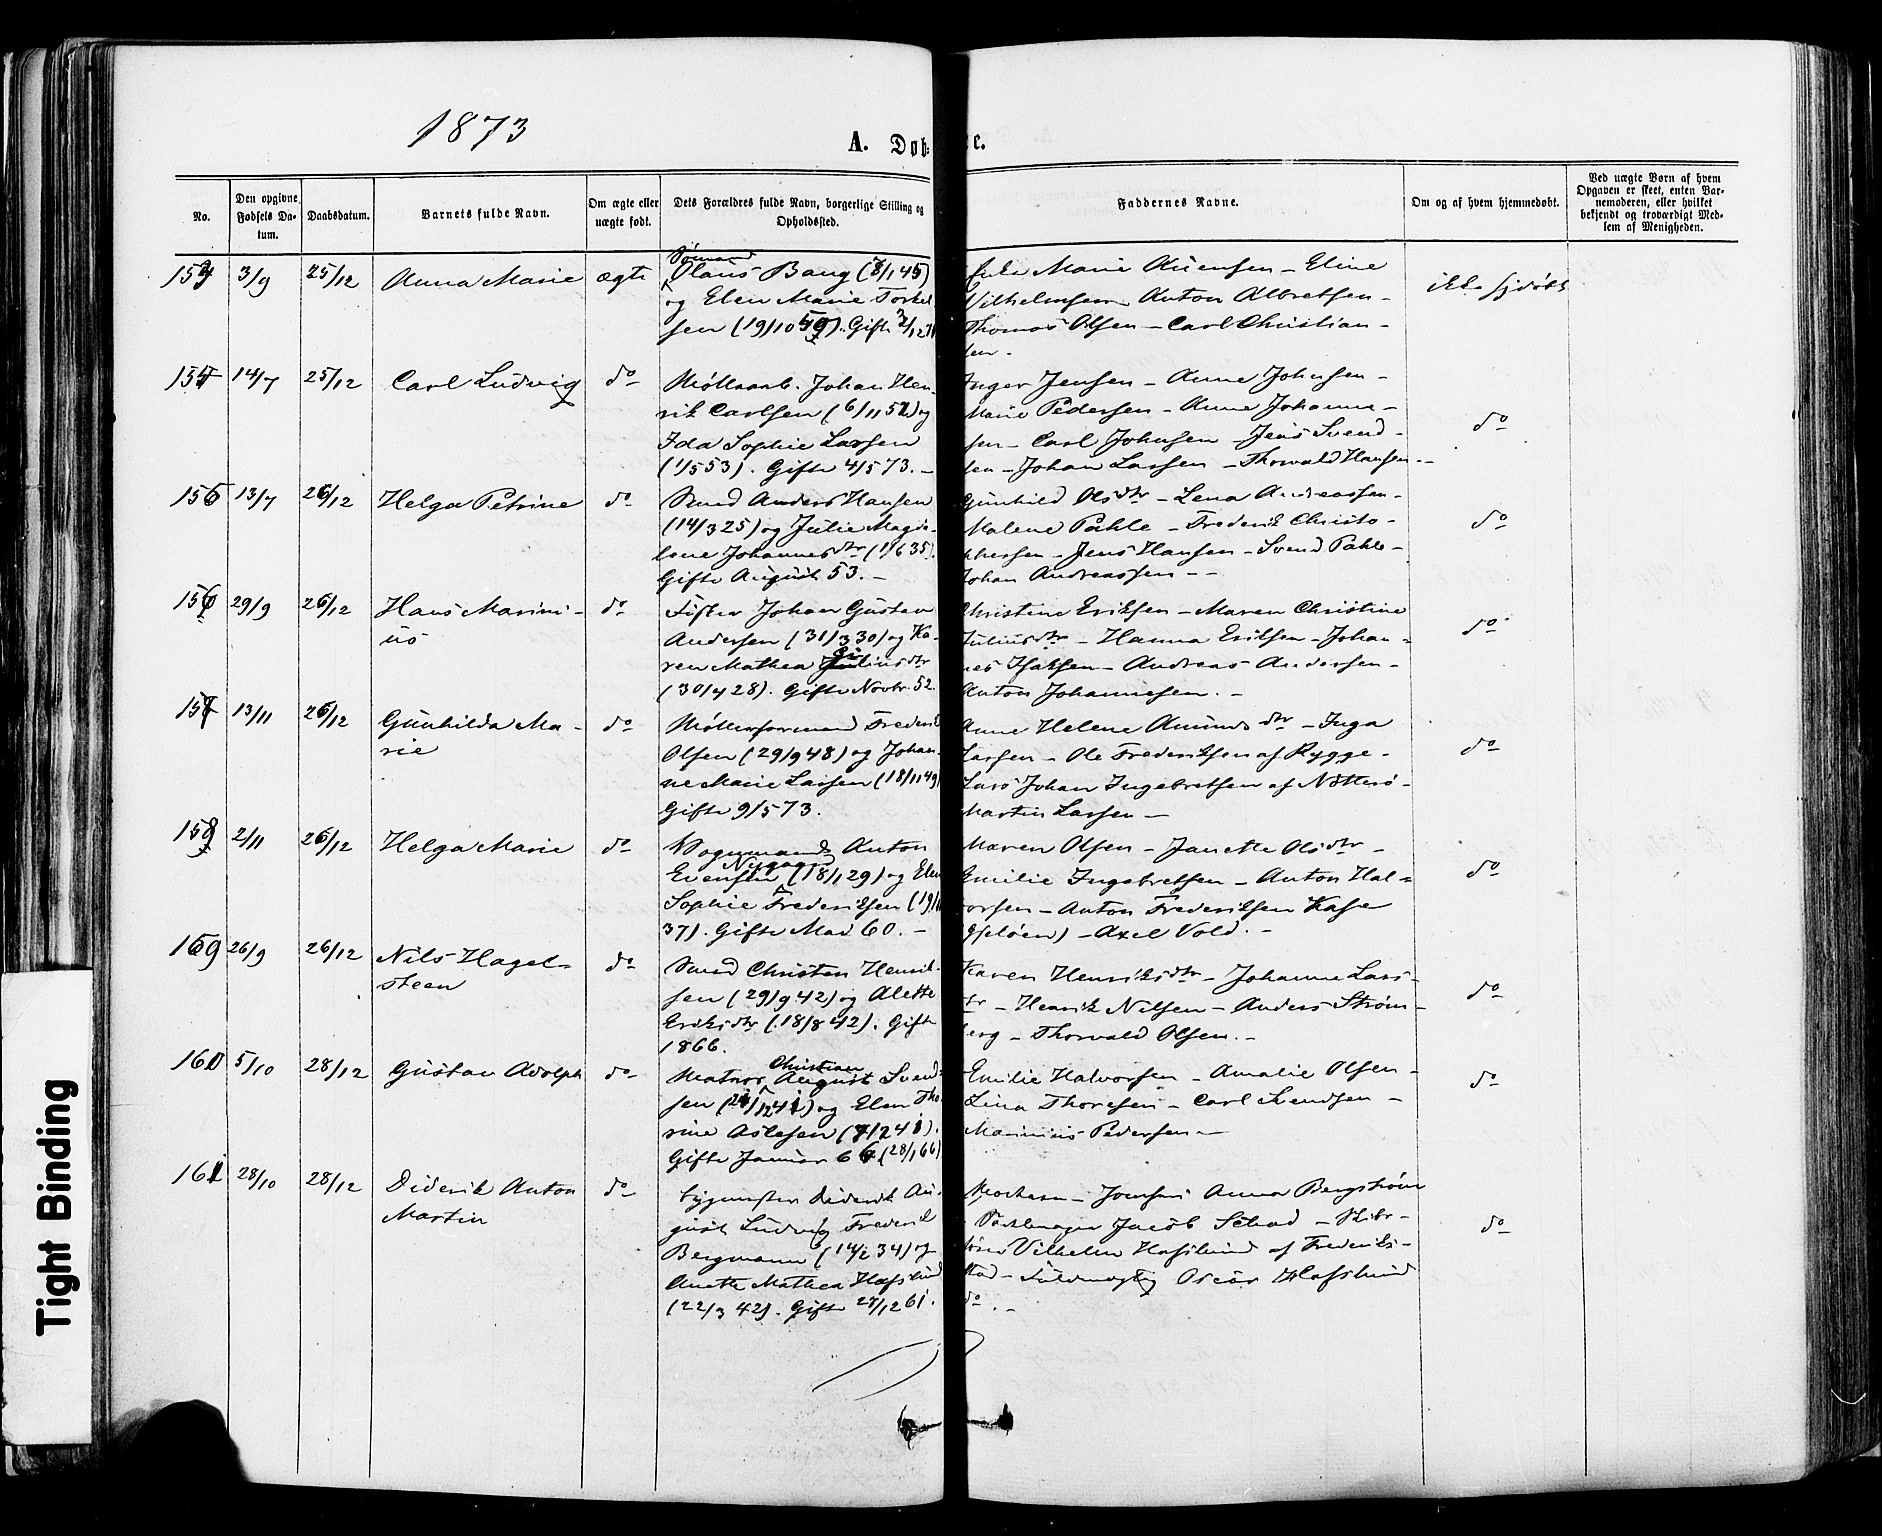 1873
A. Døb-
e.
No.
Den opgivne Fødsels Da-
tum.
Daabsdatum.
Barnets fulde Navn.
Om ægte eller
uægte født.
Dets Forældres fulde Navn, borgerlige Stilling og
Opholdssted.
Faddernes Navne.
Om og af hvem hjemmedøbt.
Ved uægte Børn af hvem
Opgaven er skeet, enten Bar-
nemoderen, eller hvilket
bekjendt og troværdigt Med-
lem af Menigheden.
3/9 25/12 Anna Marie ægte
Sømand
Olaus Bang
og Elen Marie Torkel
sen (19/10 59). Gift
Marie - Eline
Vilhelmsen Anton Albretsen -
Thomas Olsen - Carl Christian -
sen.
ikke hjdøbt
14/7 25/12 Carl Ludvig do
Møllearb. Johan Hen-
rik Carlsen (6/11 51) og
Ida Sophie Larsen
(1/5 53). Gifte 4/5 73. -
Inger Jensen - Anne Johnsen -
Marie Pedersen - Anne Johanne-
sen - Carl Johnsen - Jens Svend-
sen - Johan Larsen - Thorvald Hansen. -
do
13/7 26/12 Helga Petrine do
Smed Anders Hansen
(14/3 25) og Julie Magda-
lene Johannesdtr (1/6 35).
Gifte August 53. -
Gunhild Olsdtr - Lena Andreassen -
Malene Påhle - Frederik Christo-
phersen - Jens Hansen - Svend Påhle -
Johan Andreassen - -
do
29/9 26/12 Hans Marini-
us
do
Fisker Johan Gustav
Andersen (31/3 30) og Ka-
ren Mathea Juliusdtr
(30/4 28). Gifte Novbr. 52.
Christine Eriksen - Maren Christine
Juliusdtr - Hanna Eriksen - Johan-
nes Isaksen - Andreas Andersen -
Anton Johannesen. -
do
13/11 26/12 Gunhilda Ma-
rie
do
Møllerformand Frederik
Olsen (29/9 48) og Johan-
ne Marie Larsen (18/11 49)
Gifte 9/5 73.
Anne Helene Amundsdtr - Inga
Larsen - Ole Frederiksen af Rygge -
Lars Johan Ingebretsen af Nøtterø -
Martin Larsen -
do
2/11 26/12 Helga Marie do
Vognmand Anton
Nygaard
Evensen (18/1 29) og Elen
Sophie Frederiksen (19/
37). Gifte Mai 60. -
Maren Olsen - Janette Olsdtr -
Emilie Ingebretsen - Anton Hal-
vorsen - Anton Frederiksen Kase
(Jeløen) - Axel Vold. -
do
159 26/9 26/12 Nils Hagel-
steen
do
Smed Christen Henrik-
sen (29/9 42) og Alette
Eriksdtr (18/8 42). Gift
1866.
Karen Henriksdtr - Johanne Lars-
dtr - Henrik Nilsen - Anders Strøm-
berg - Thorvald Olsen. -
do
160 5/10 28/12 Gustav Adolph do
Christian
Matros August Svend-
sen og Elen Tho-
rine Aslesen
Gifte Januar 66 (28/1 66)
Emilie Halvorsen - Amalie Olsen -
Lina Thoresen - Carl Svendsen -
Marinius Pedersen -
do
161 28/10 28/12 Diderik Anton
Martin
do
Bygmester Diderik Au-
gust Ludvig Frederik
Bergmann (14/2 34) og
Anette Mathea Hafslund
(22/3 42). Gifte 27/12 61.
Anna Bergstrøm
Jacob Schad - Skibs-
fører Vilhelm Hafslund af Frederik-
stad - Fuldmægtig Oscar Hafslund
do. -
do
Tight Binding